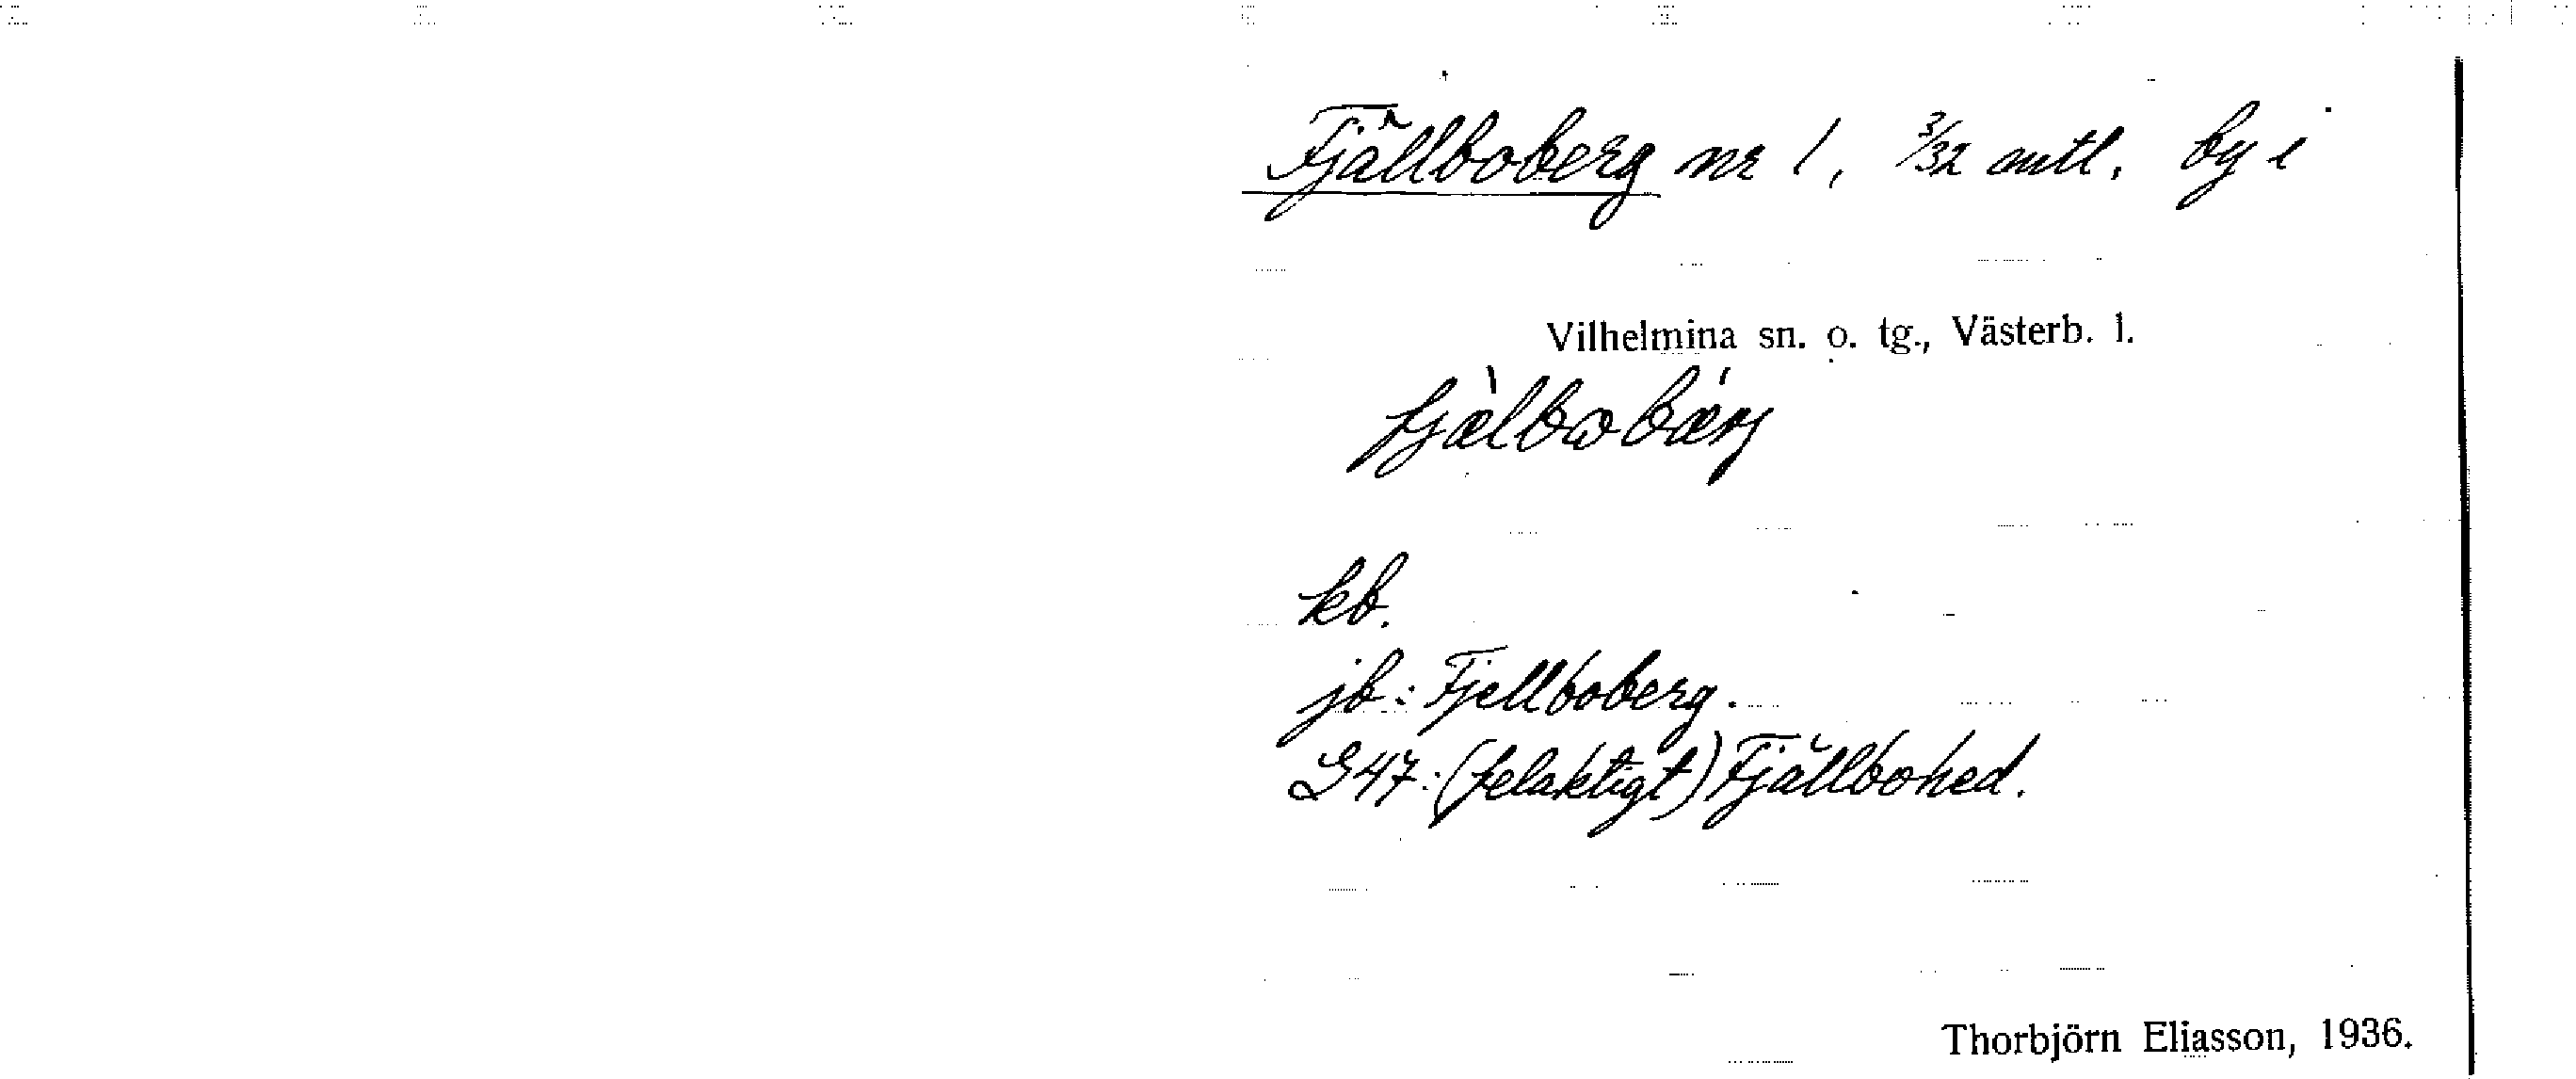 Fjällboberg nr 1, 3/32 mtl. by i
Vilhelmina sn. o. tg., Västerb. l.
kb.
jb: Fjellboberg.
G47: (felaktigt) Fjällbohed.
Thorbjörn Eliasson, 1936.